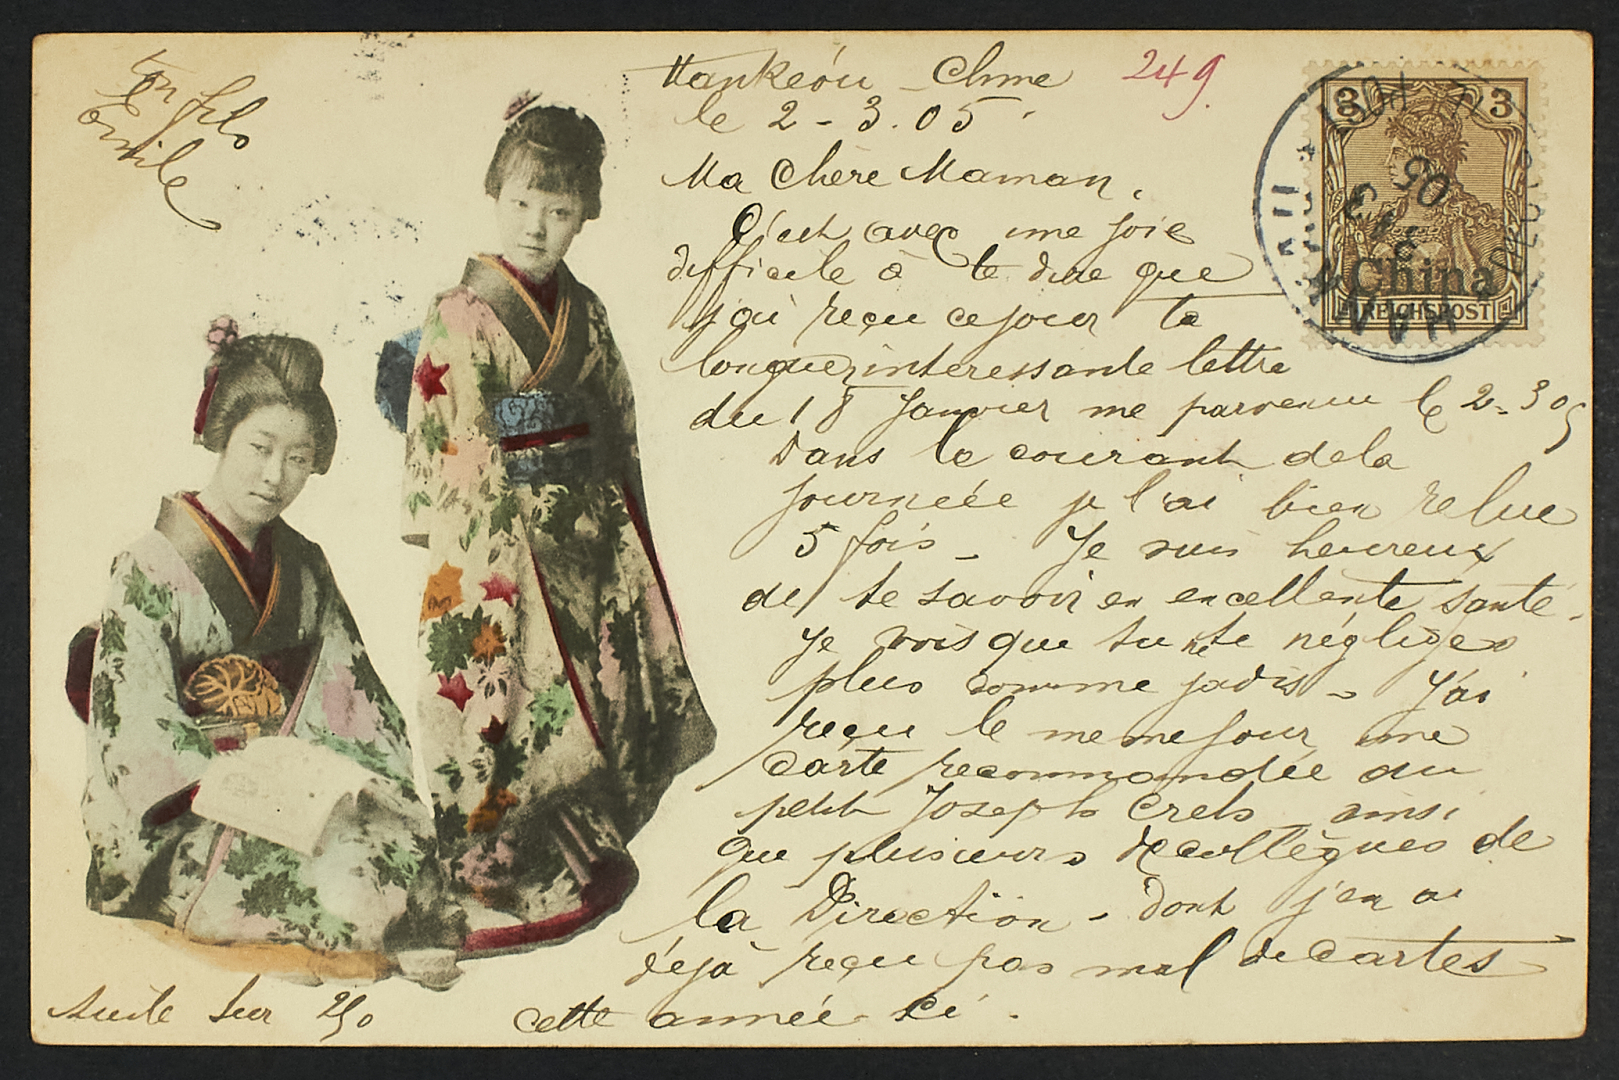 Ton fils
Emile
Hankéou - Chine
249.
le 2 - 3. 05.
Ma Chère Maman,
C'est avec une joie
difficile à te dire que
j'ai reçu ce jour ta
longue, intéressante lettre
du 18 Janvier me parvenu le 2-3 05
Dans le courant de la
journéée je l'ai bien relue
5 fois - Je suis heureux
de te savoir en excellente santé.
Je vois que tu ne te négliges
plus comme jadis - J'ai
reçu le meme jour une
carte recommandée du
petit Joseph Crets ainsi
que plusieurs de collègues de
la Direction - dont j'en ai
déjà reçu pas mal de cartes
cette année-ci.
Suite sur 250
3 3
China
REICHSPOST
HANKAU
DEUTSCHE POST
3 3
05